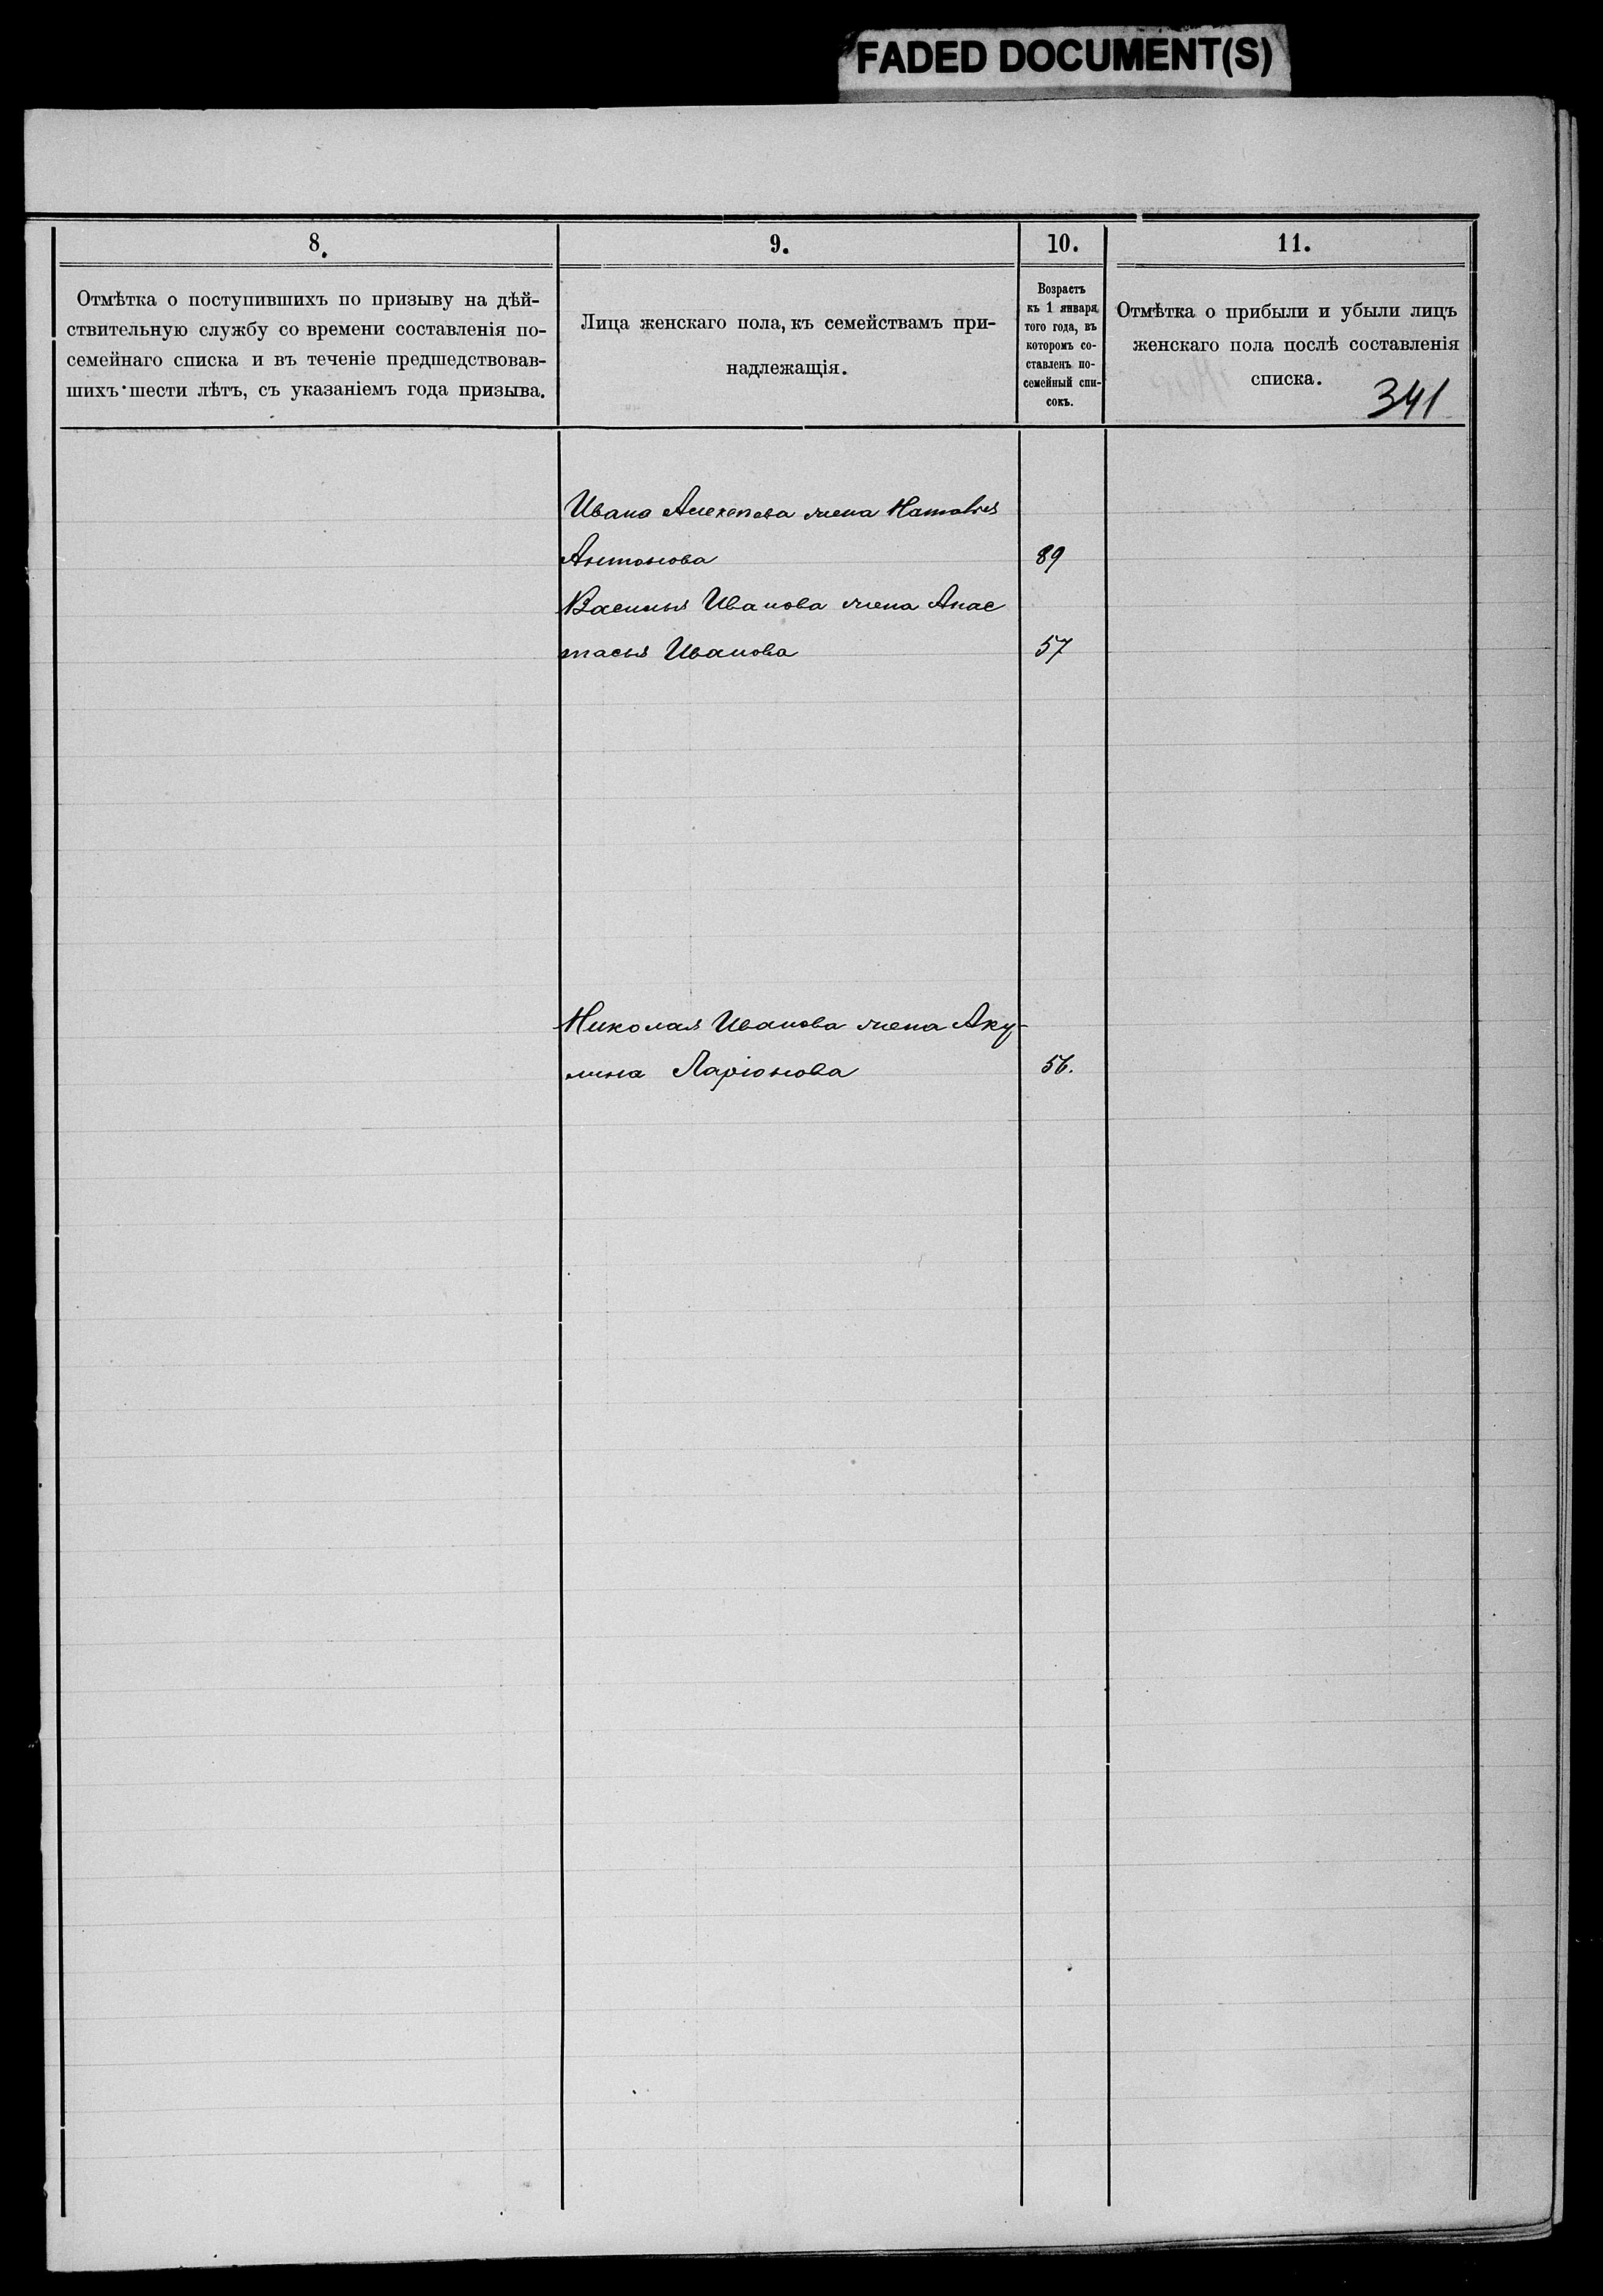 FADED DOCUMENT(S)
8.
9.
10.
11.
Отмѣтка о поступившихъ по призыву на дѣй-
ствительную службу со времени составленія по-
семейнаго списка и въ теченіе предшедствовав-
шихъ шести лѣтъ, съ указаніемъ года призыва.
Лица женскаго пола, къ семействамъ при-
надлежащія.
Возрастъ
къ 1 января
того года, въ
которомъ со-
ставленъ по-
семейный спи-
сокъ.
Отмѣтка о прибыли и убыли лицъ
женскаго пола послѣ составленія
списка.
341
Ивана Алексѣева жена Наталья
Антонова 89
Василья Иванова жена Анас
тасья Иванова 57
Николая Иванова жена Аку-
лина Ларіонова 56.